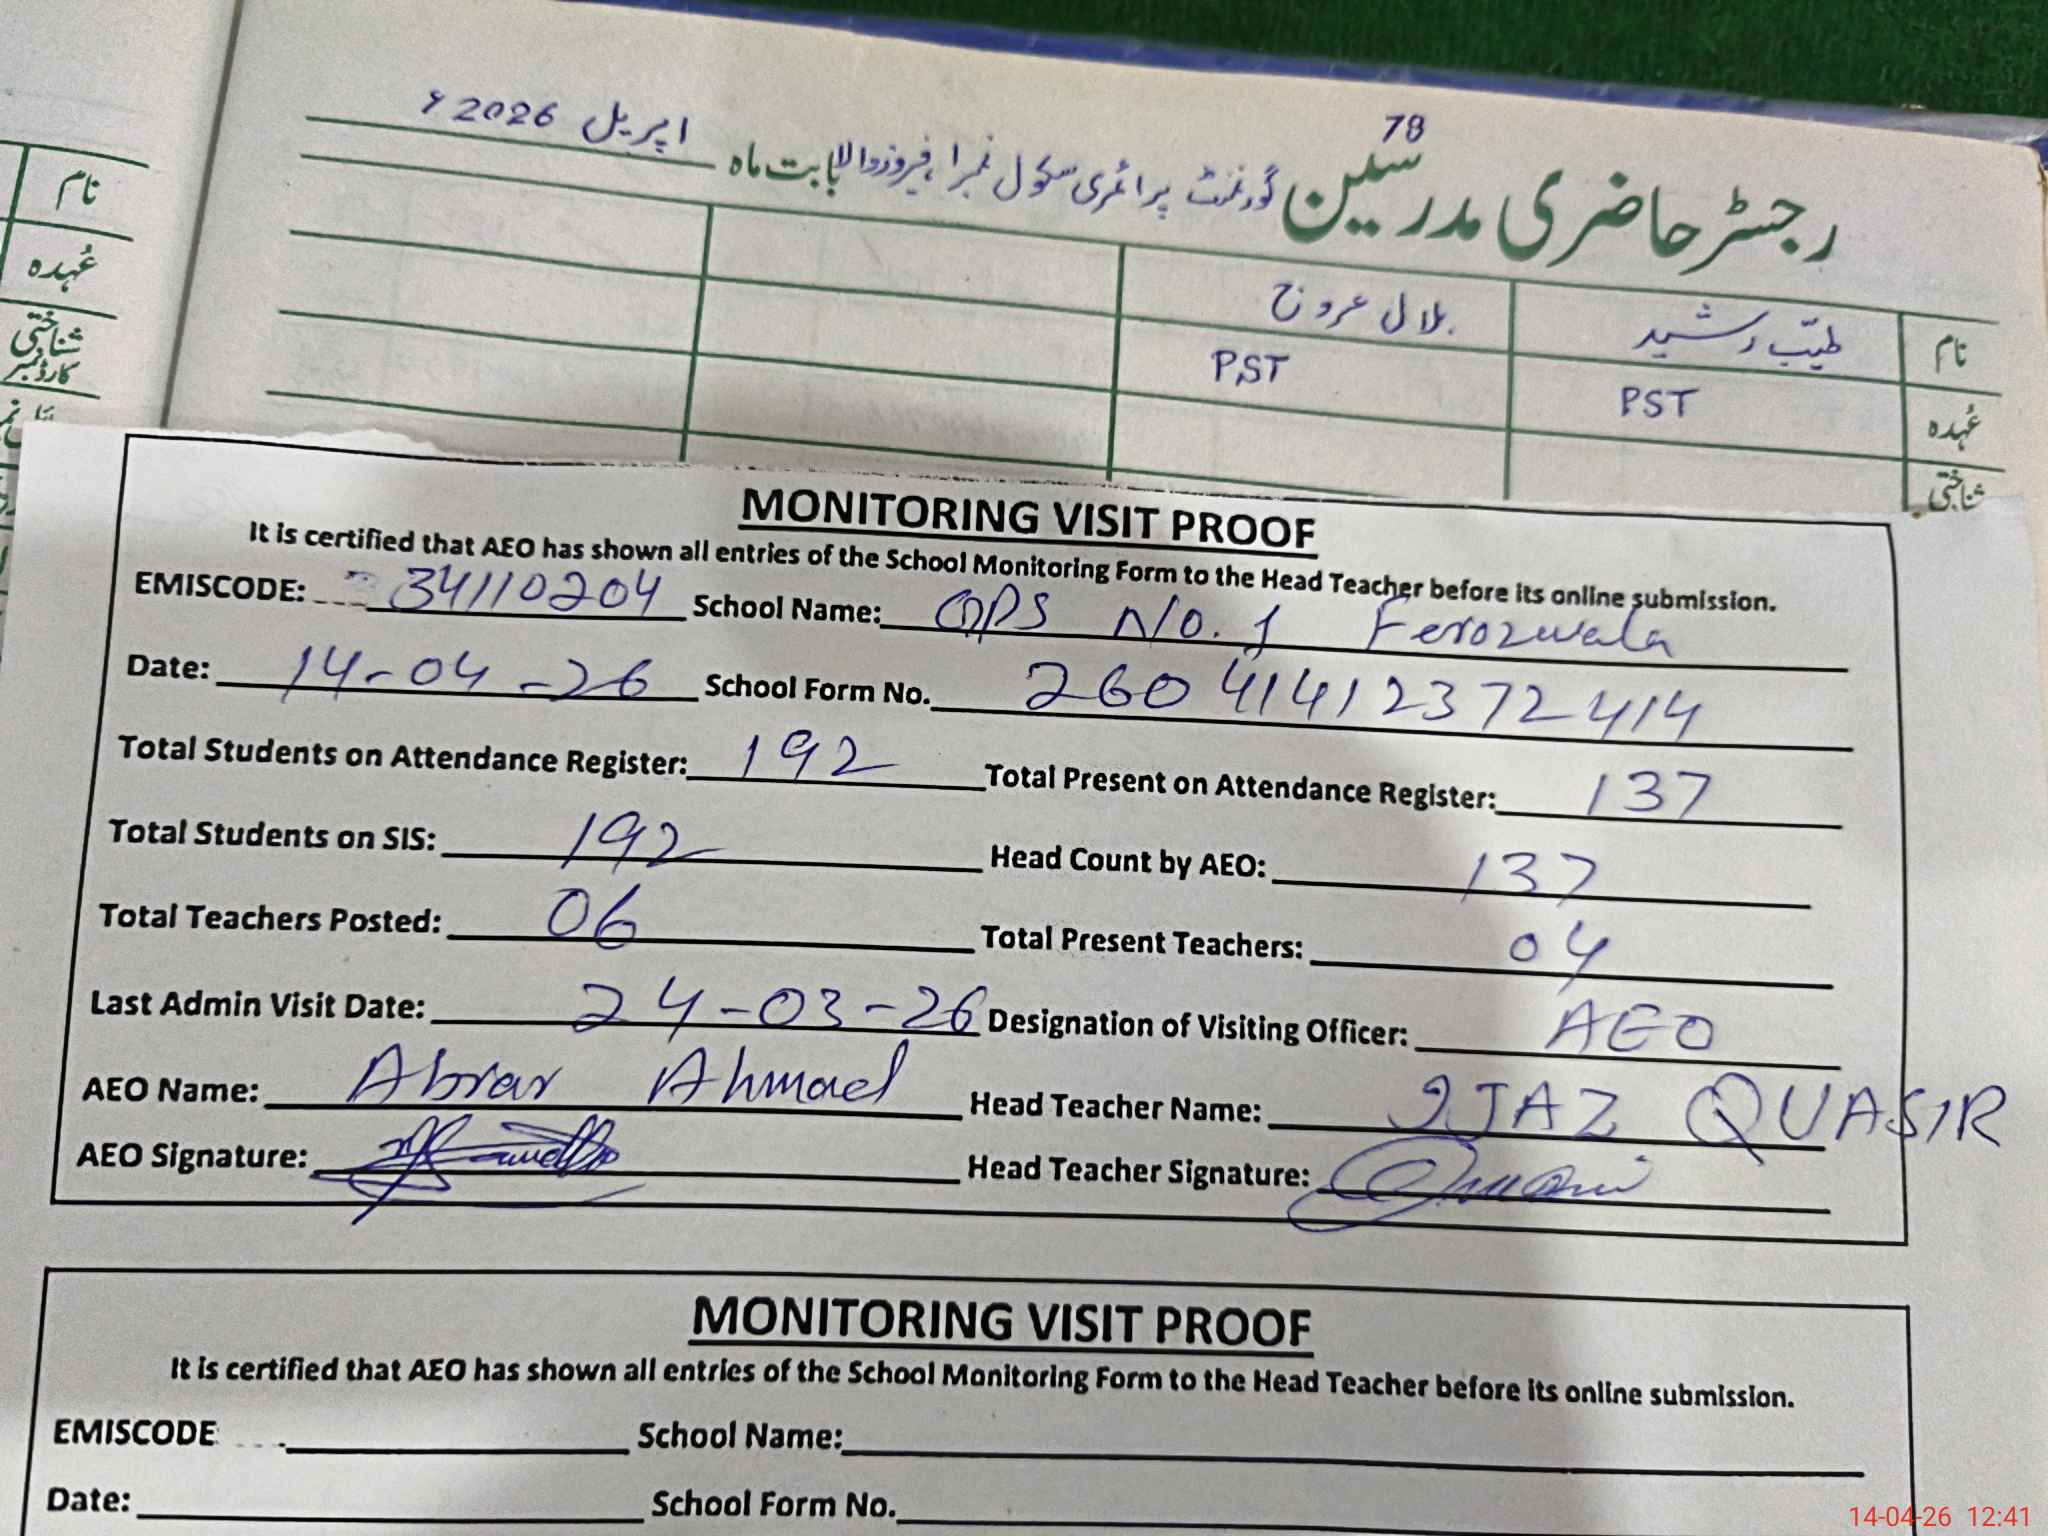 78
رجسٹر حاضری مدرسین گورنمنٹ پرائمری سکول نمبر1، فیروزوالا بابت ماہ اپریل 2026ء
نام طیّب رشید بلال عروج
عُہدہ PST PST
شناختی
نام
عُہدہ
شناختی
کارڈ نمبر
MONITORING VISIT PROOF
It is certified that AEO has shown all entries of the School Monitoring Form to the Head Teacher before its online submission.
EMISCODE: 34110204 School Name: GPS No. 1 Ferozwala
Date: 14-04-26 School Form No. 26041412372414
Total Students on Attendance Register: 192 Total Present on Attendance Register: 137
Total Students on SIS: 192 Head Count by AEO: 137
Total Teachers Posted: 06 Total Present Teachers: 04
Last Admin Visit Date: 24-03-26 Designation of Visiting Officer: AEO
AEO Name: Abrar Ahmad Head Teacher Name: IJAZ QUASIR
AEO Signature: Head Teacher Signature:
MONITORING VISIT PROOF
It is certified that AEO has shown all entries of the School Monitoring Form to the Head Teacher before its online submission.
EMISCODE School Name:
Date: School Form No.
14-04-26 12:41